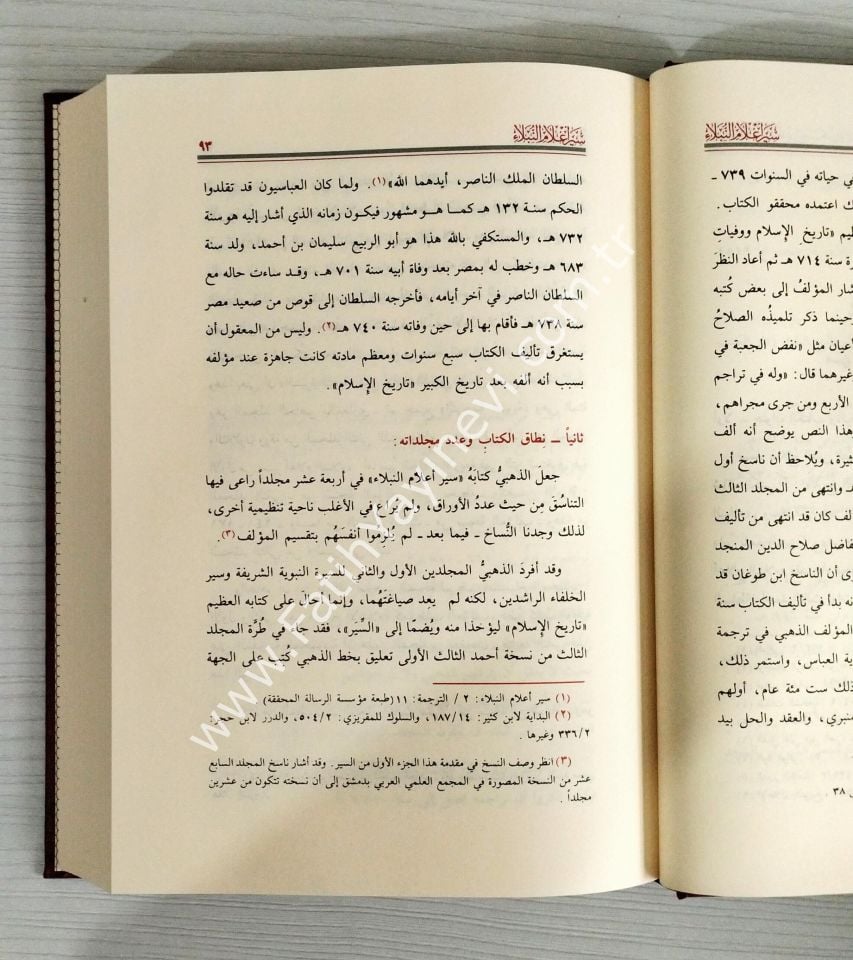 سير أعلام النبلاء
في حياته في السنوات ٧٣٩ ـ
ك اعتمده محققو الكتاب .
ظيم «تاريخ الإسلام ووفياتِ
رة سنة ٧١٤ هـ ثم أعاد النظرَ
شار المؤلفُ إلى بعض كُتبه
وحينما ذكر تلميذُه الصلاحُ
أعيان مثل «نفض الجعبة في
غيرهما قال: «وله في تراجم
الأربع ومن جرى مجراهم،
وهذا النص يوضح أنه ألف
ثيرة، ويُلاحظ أن ناسخ أول
د وانتهى من المجلد الثالث
لف كان قد انتهى من تأليف
فاضل صلاح الدين المنجد
رى أن الناسخ ابن طوغان قد
نه بدأ في تأليف الكتاب سنة
المؤلف الذهبي في ترجمة
ية العباس، واستمر ذلك،
ذلك ست مئة عام، أولهم
منبري، والعقد والحل بيد
٣٨
سير أعلام النبلاء
٩٣
السلطان الملك الناصر، أيدهما الله» (١). ولما كان العباسيون قد تقلدوا
الحكم سنة ١٣٢ هـ كما هو مشهور فيكون زمانه الذي أشار إليه هو سنة
٧٣٢ هـ، والمستكفي بالله هذا هو أبو الربيع سليمان بن أحمد، ولد سنة
٦٨٣ هـ وخطب له بمصر بعد وفاة أبيه سنة ٧٠١ هـ، وقد ساءت حاله مع
السلطان الناصر في آخر أيامه، فأخرجه السلطان إلى قوص من صعيد مصر
سنة ٧٣٨ هـ فأقام بها إلى حين وفاته سنة ٧٤٠ هـ (٢). وليس من المعقول أن
يستغرق تأليف الكتاب سبع سنوات ومعظم مادته كانت جاهزة عند مؤلفه
بسبب أنه ألفه بعد تاريخ الكبير «تاريخ الإسلام».
ثانياً ـ نِطاق الكتابِ وعدد مجلداته:
جعلَ الذهبيُّ كتابَهُ «سير أعلام النبلاء» في أربعة عشر مجلداً راعى فيها
التناسُقَ مِن حيث عددُ الأوراق، ولم يُراعِ في الأغلب ناحية تنظيمية أخرى،
لذلك وجدنا النُّساخ ـ فيما بعد ـ لم يُلزِموا أنفسَهُم بتقسيم المؤلف (٣).
وقد أفردَ الذهبيُّ المجلدين الأول والثاني للسيرة النبوية الشريفة وسير
الخلفاء الراشدين، لكنه لم يعِد صياغتَهُما، وإنما أحالَ على كتابه العظيم
«تاريخ الإسلام» ليؤخذا منه ويُضمّا إلى «السِّيَر»، فقد جاء في طُرَّة المجلد
الثالث من نسخة أحمد الثالث الأولى تعليق بخط الذهبي كُتب على الجهة
(١) سير أعلام النبلاء: ٢ / الترجمة: ١١ (طبعة مؤسسة الرسالة المحققة)
(٢) البداية لابن كثير: ١٨٧/١٤، والسلوك للمقريزي: ٥٠٤/٢، والدرر لابن حجر:
٣٣٦/٢ وغيرها .
(٣) انظر وصف النسخ في مقدمة هذا الجزء الأول من السير. وقد أشار ناسخ المجلد السابع
عشر من النسخة المصورة في المجمع العلمي العربي بدمشق إلى أن نسخته تتكون من عشرين
مجلداً.
www.Fatihyayinevi.com.tr